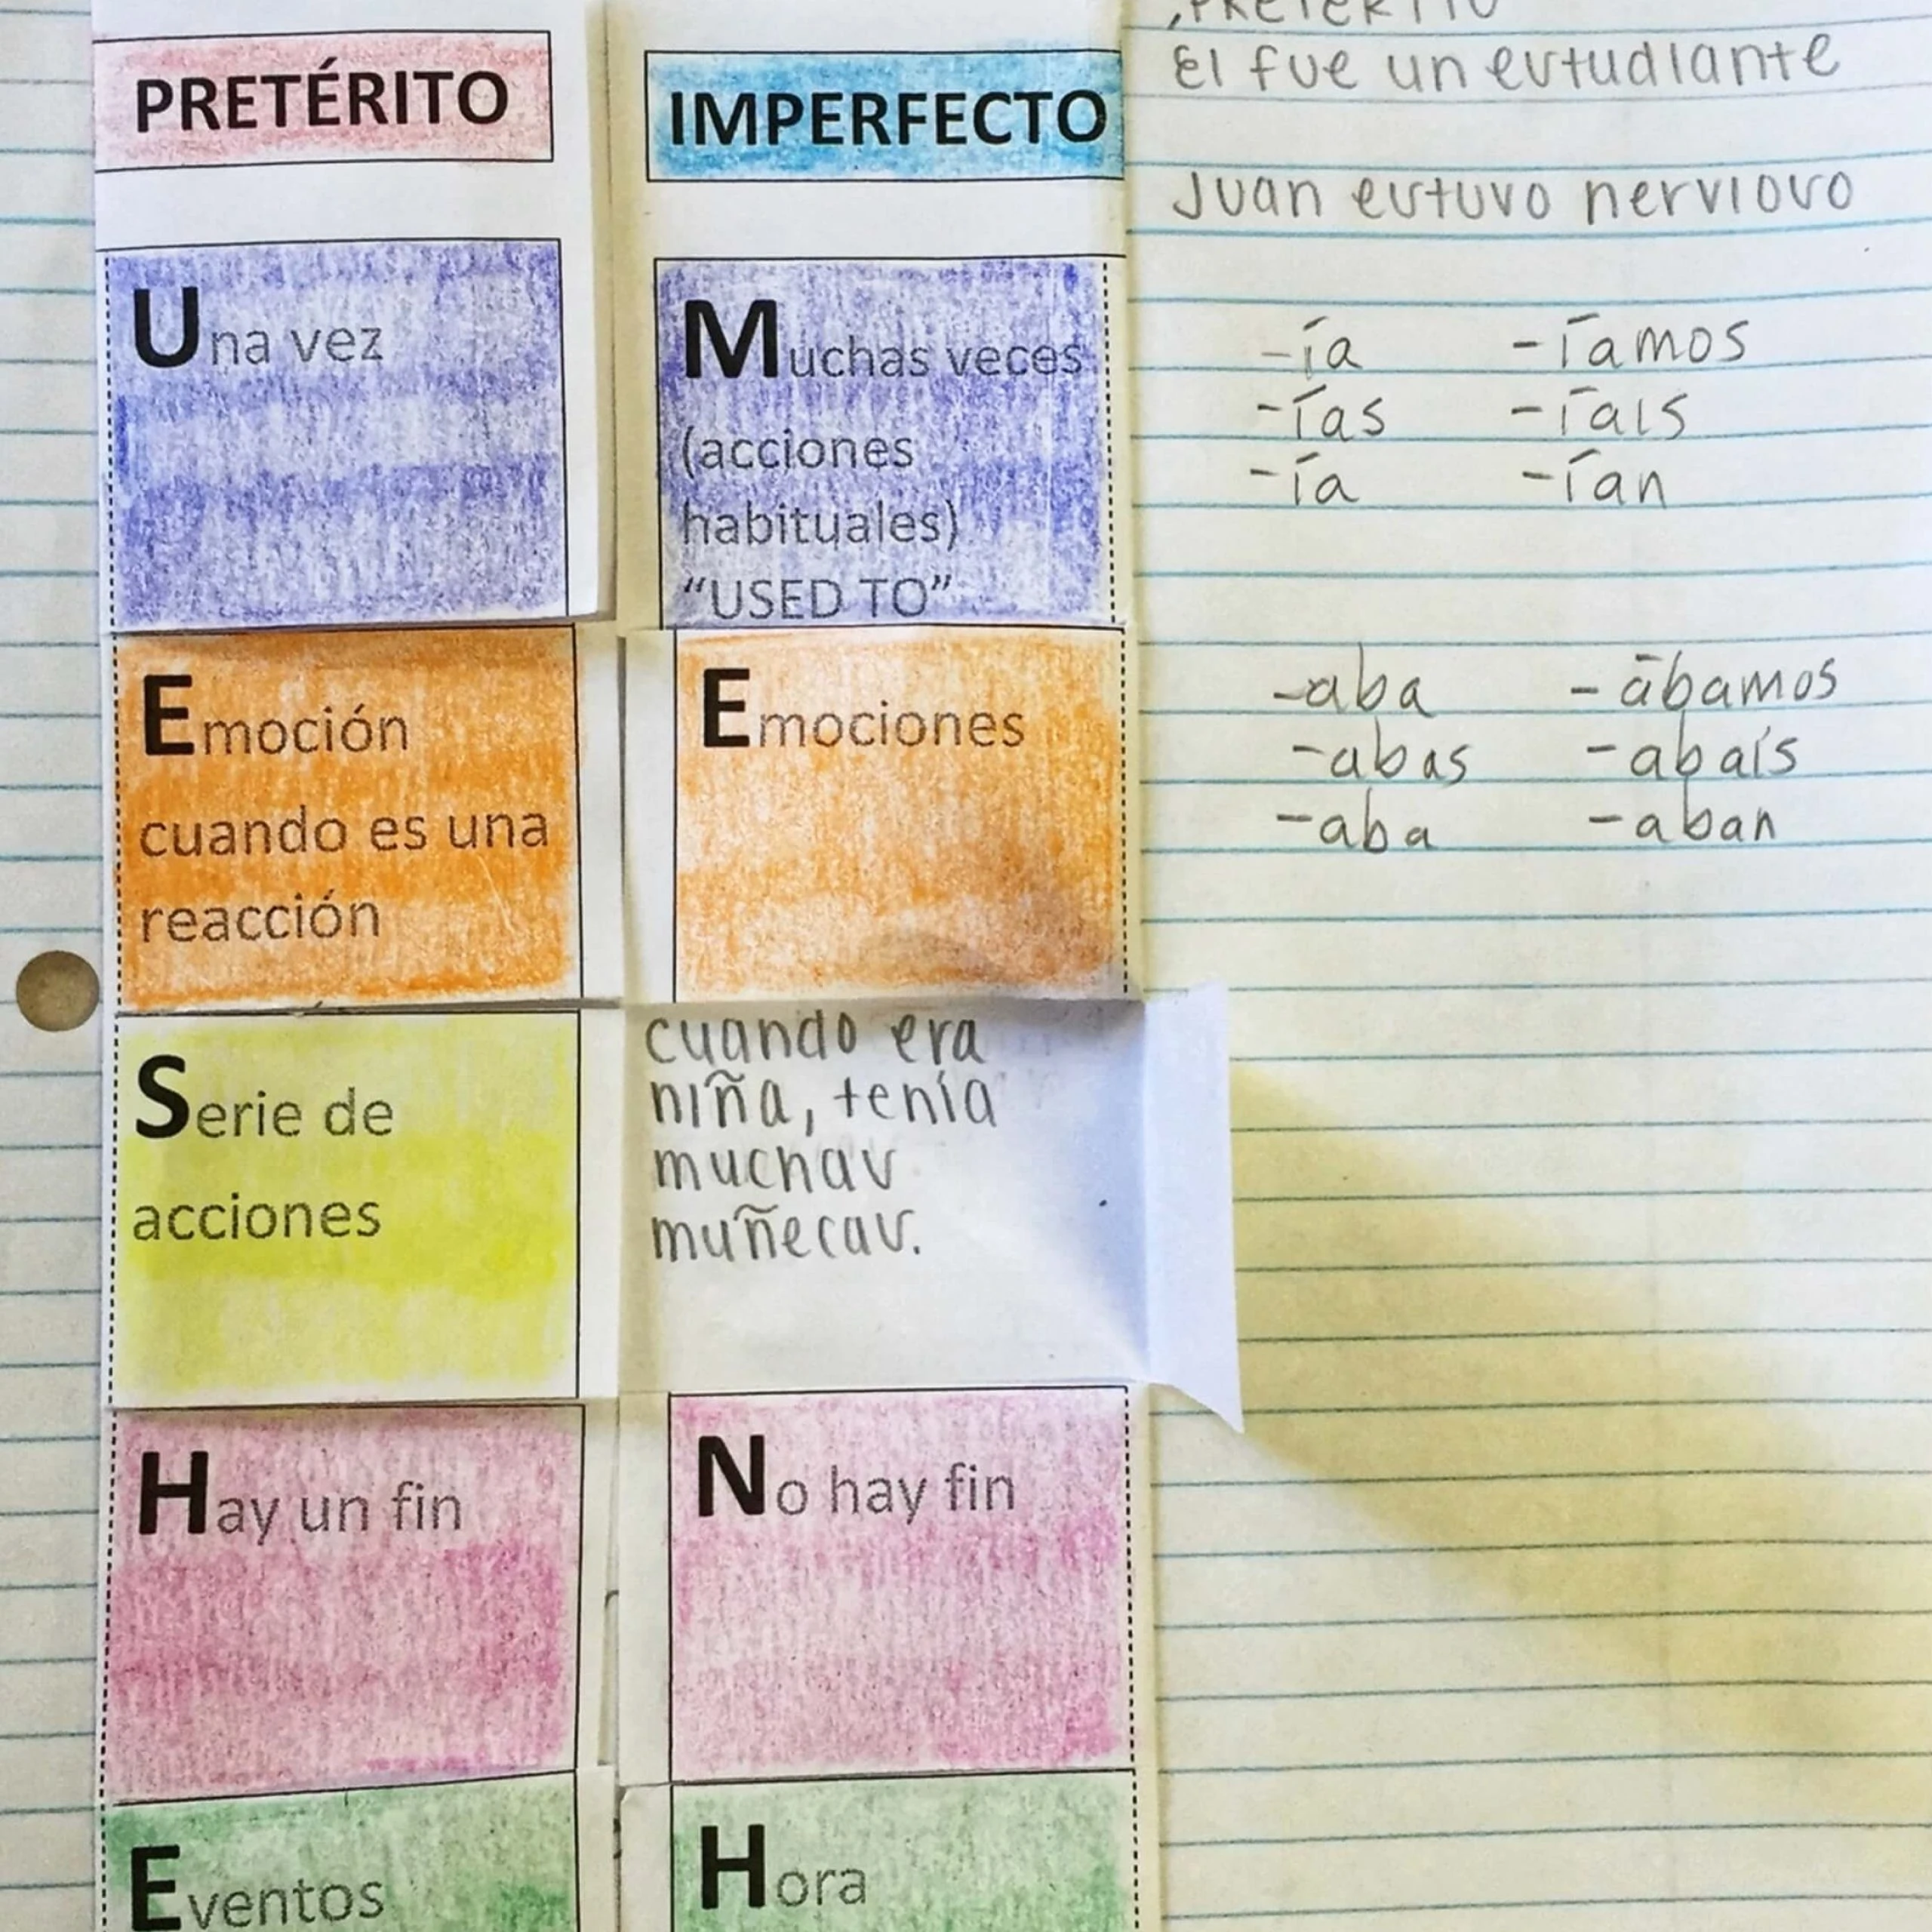 PRETÉRITO
Una vez
Emoción
cuando es una
reacción
Serie de
acciones
Hay un fin
Eventos
IMPERFECTO
Muchas veces
(acciones
habituales)
“USED TO”
Emociones
cuando era
niña, tenía
muchas
muñecas.
No hay fin
Hora
PRETÉRITO
El fue un estudiante
Juan estuvo nervioso
-ía -íamos
-ías -íais
-ía -ían
-aba -ábamos
-abas -abaís
-aba -aban